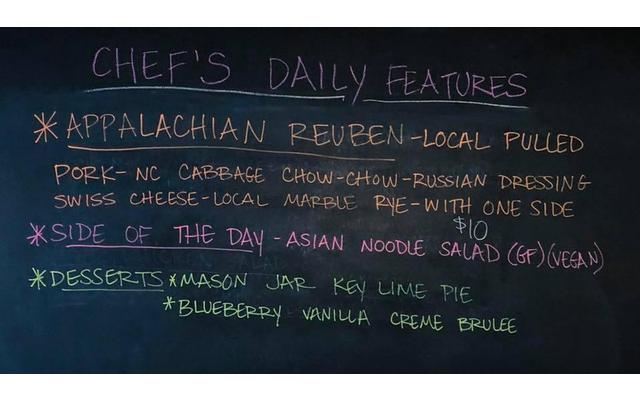 CHEF'S DAILY FEATURES
*APPALACHIAN REUBEN-LOCAL PULLED
PORK-NC CABBAGE CHOW-CHOW-RUSSIAN DRESSING
SWISS CHEESE-LOCAL MARBLE RYE-WITH ONE SIDE
$10
*SIDE OF THE DAY-ASIAN NOODLE SALAD (GF)(VEGAN)
*DESSERTS *MASON JAR KEY LIME PIE
*BLUEBERRY VANILLA CREME BRULEE